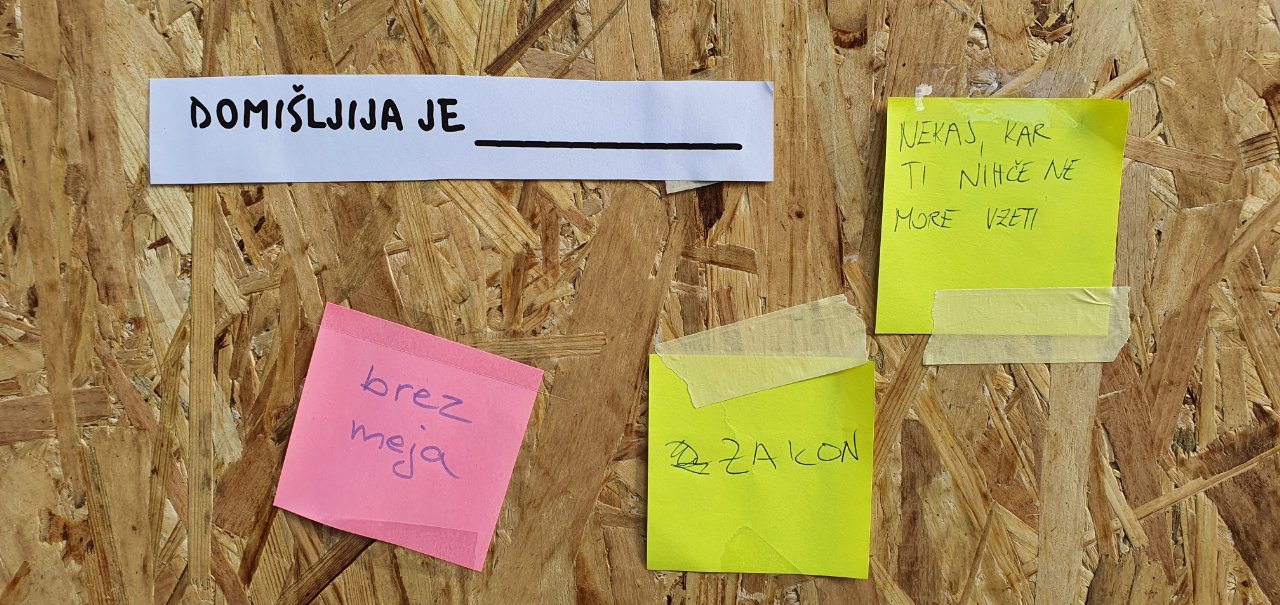 DOMIŠLJIJA JE
NEKAJ, KAR
TI NIHČE NE
MORE VZETI
brez
meja
ZAKON